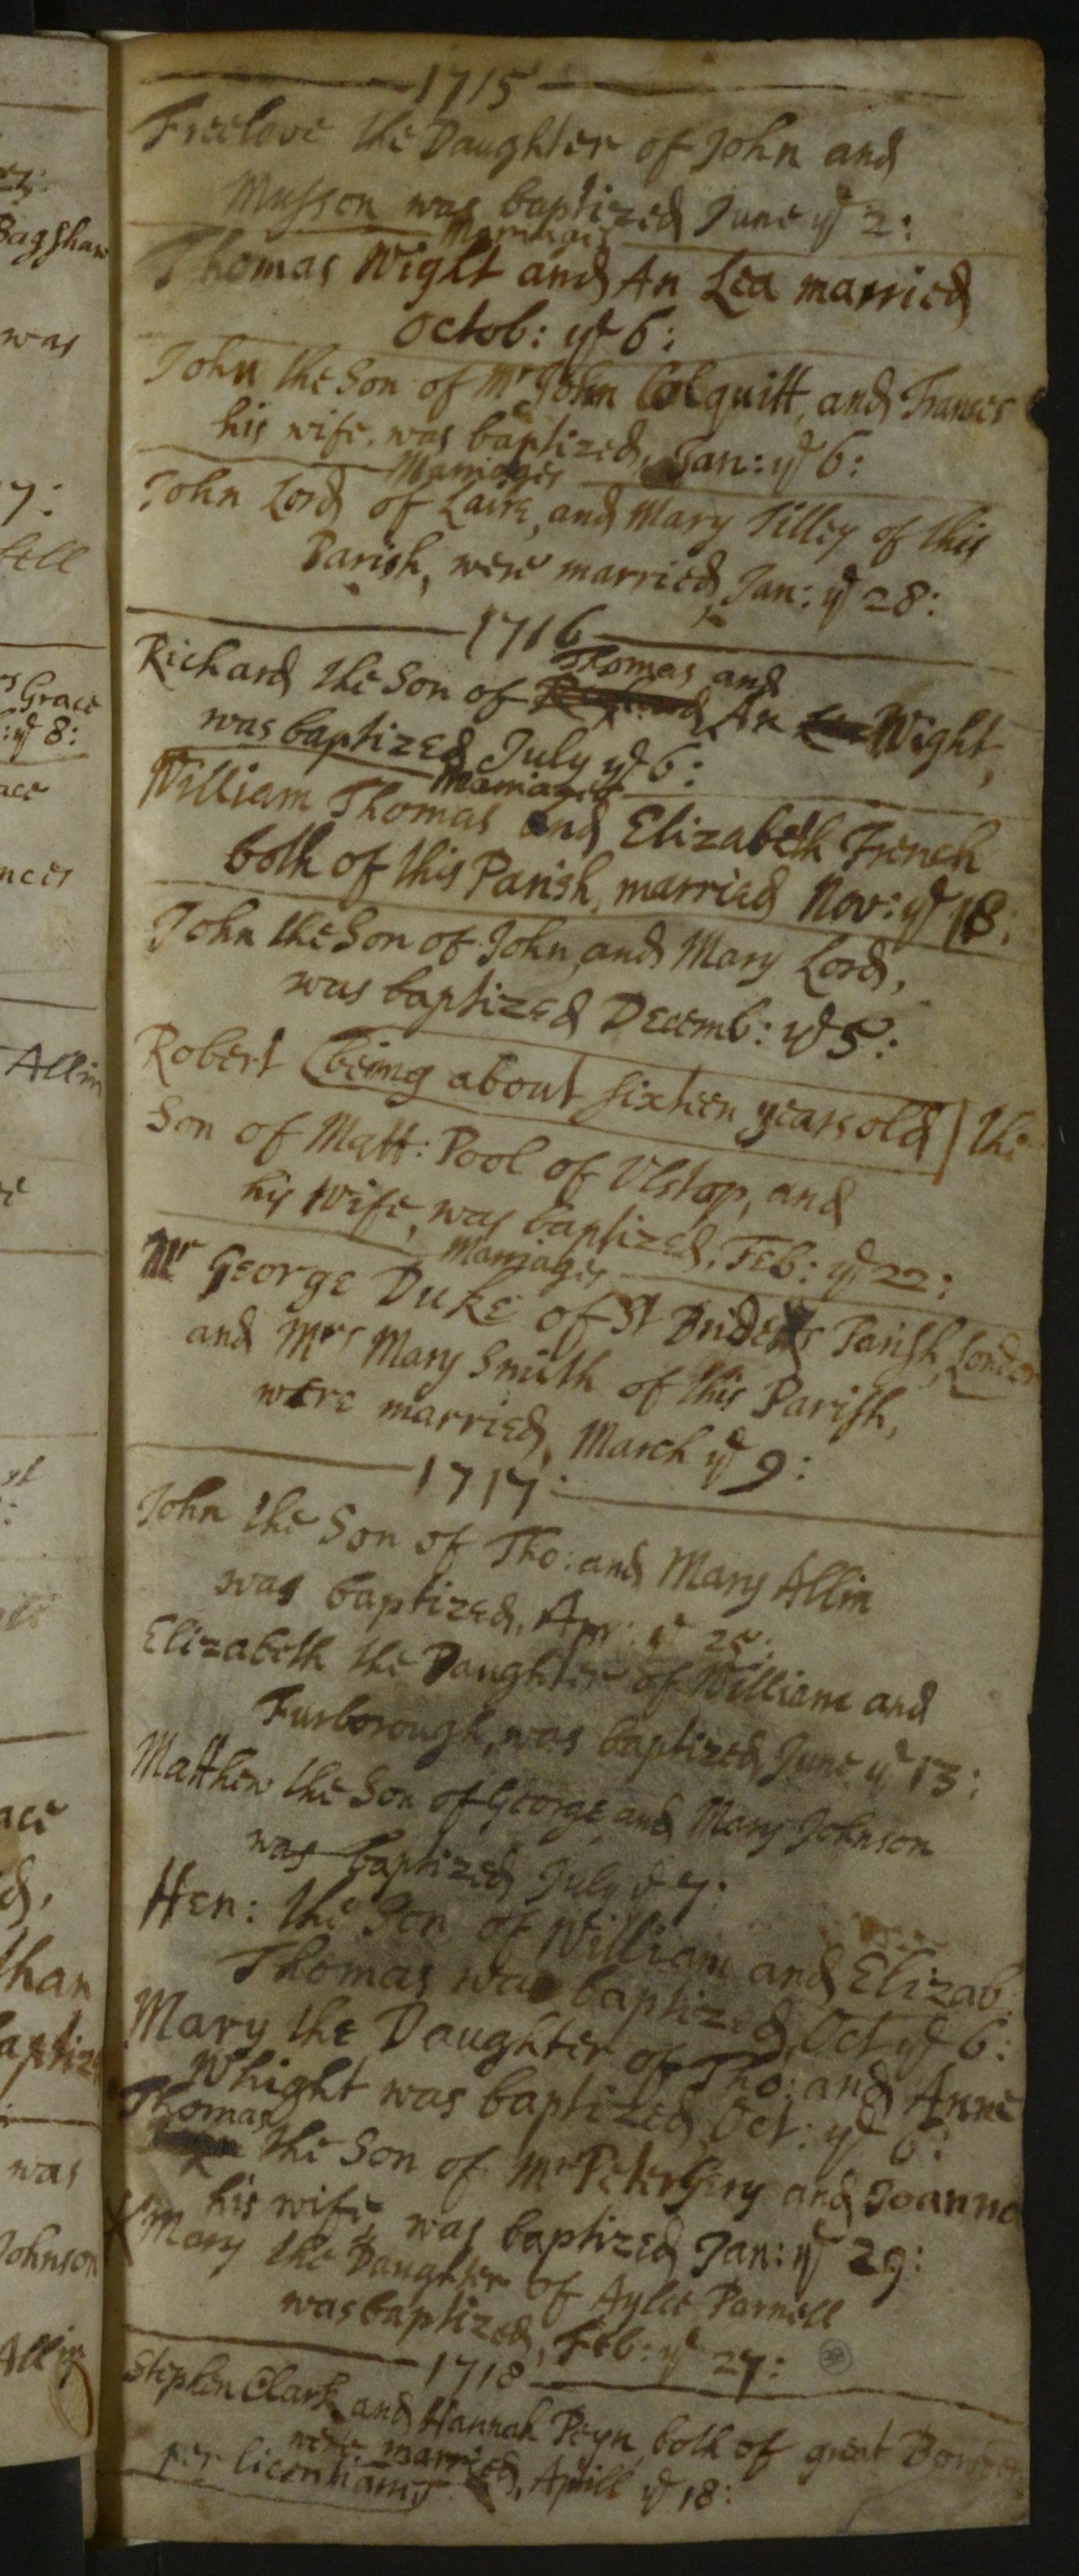 1715
Freelove the Daughter of John and
Musson was baptized June ye 2:
Marriages
Thomas Wight and An Lea married
Octob: ye 6:
John the Son of Mr John Colquitt, and Frances
his wife, was baptized, Jan: ye 6:
Marriages
John Lord of Laire, and Mary Tilley of this
Parish, were married, Jan: ye 28:
1716
Thomas and
Richard the Son of An Wight,
was baptized July ye 6:
Marriages
William Thomas and Elizabeth French
both of this Parish, married Nov: ye 18:
John the Son of John, and Mary Lord,
was baptized Decemb: ye 5:
Robert (being about sixteen years old) the
Son of Matt: Pool of Ulstop, and
his Wife, was baptized, Feb: ye 22:
Marriages
Mr George Duke of St Brides Parish, London
and Mrs Mary Smith of this Parish,
were married, March ye 9:
1717:
John the Son of Tho: and Mary Allin
was baptized, Apr: ye 25:
Elizabeth the Daughter of William and
Furborough, was baptized, June ye 13:
Matthew the Son of George, and Mary Johnson
was baptized July ye 7:
Hen: the Son of William and Elizab:
Thomas was baptized, Oct ye 6:
Mary the Daughter of Tho: and Anne
Whight was baptized Oct: ye 6:
Thomas
the Son of Mr Peter Gery and Joanna
his wife, was baptized Jan: ye 29:
X Mary the Daughter of Aylce Parnell
was baptized, Feb: ye 27:
1718
Stephen Clark and Hannah Peyn, both of great
were married, Aprill ye 18:
per licentiam
Bagshaw
was
7:
Grace
: ye 8:
Allin
was
Johnson
Allin